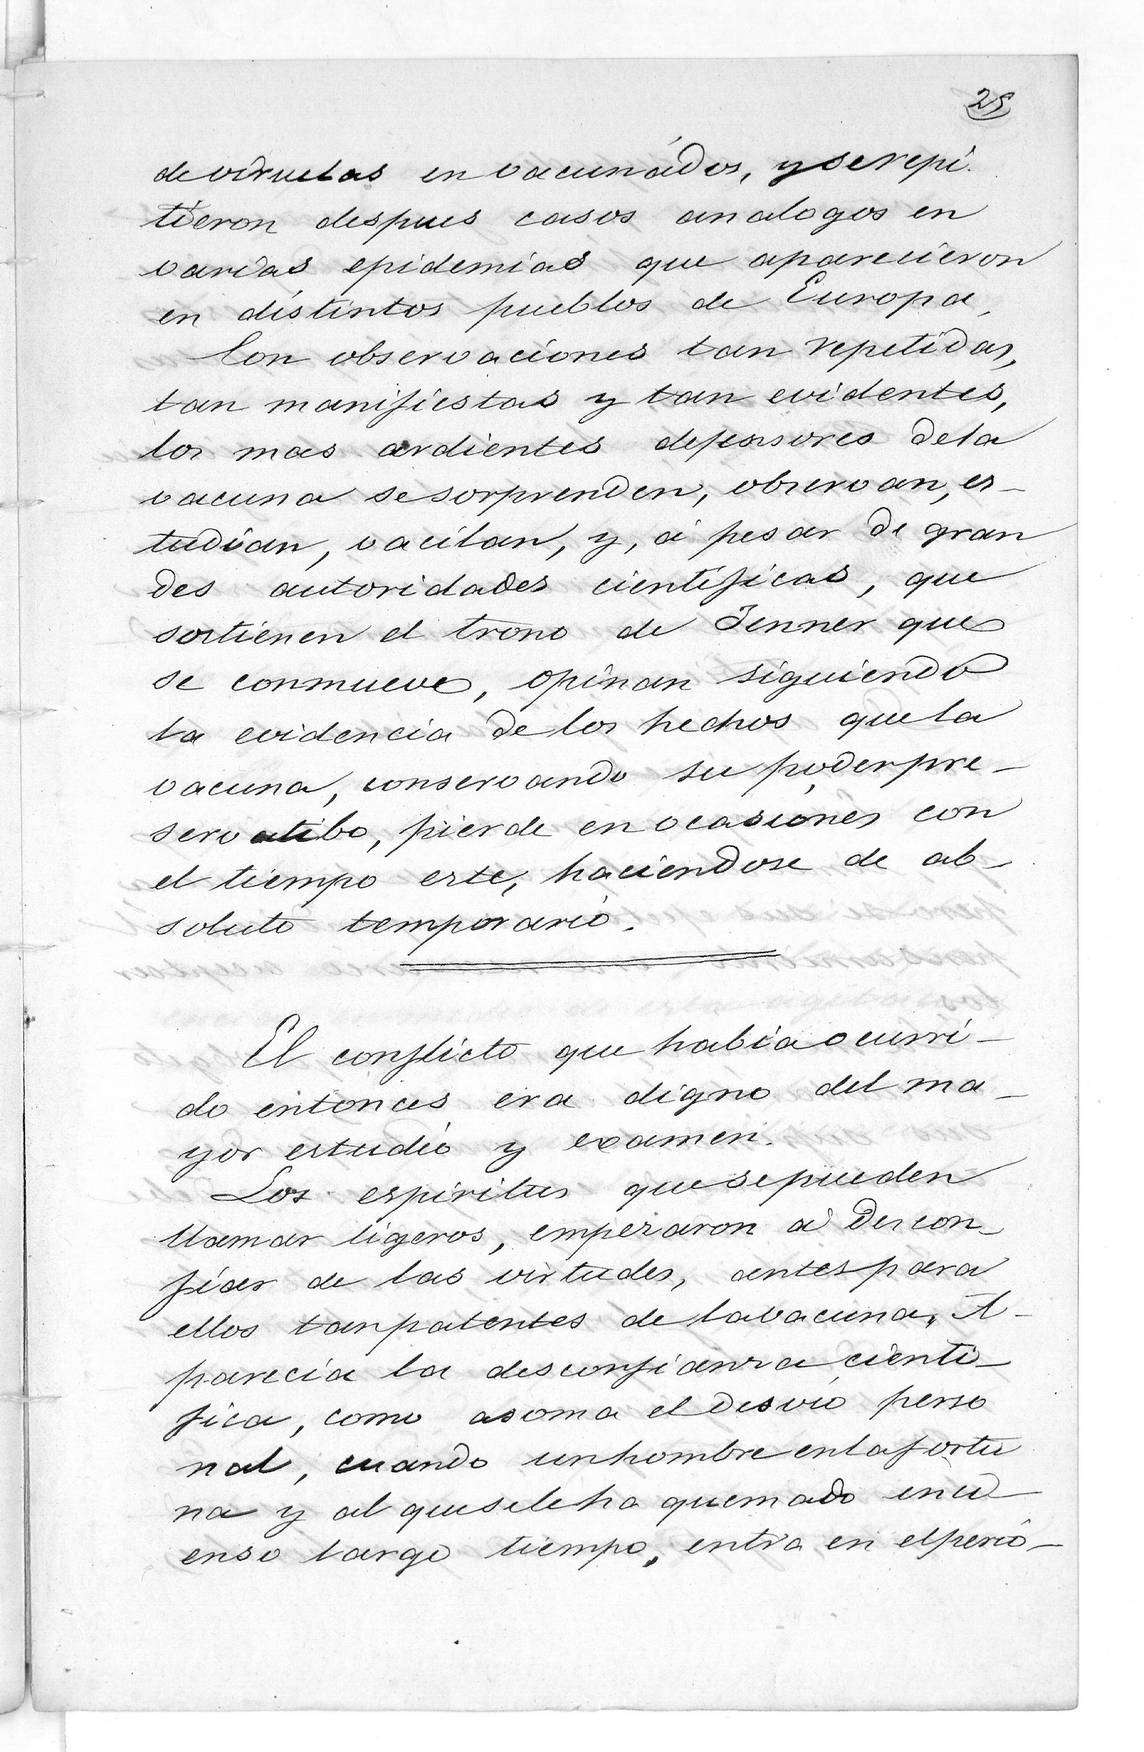 25
de viruelas en vacunados, y se repi.
tieron despues casos analogos en
varias epidemias que aparecieron
en distintos pueblos de Europa,
Con observaciones tan repetidas,
tan manifiestas y tan evidentes,
los mas ardientes defensores de la
vacuna se sorprenden, observan, es-
tudian, vacilan, y, á pesar de gran
des autoridades cientificas, que
sostienen el trono de Jenner que
se conmueve, opinan siguiendo
la evidencia de los hechos que la
vacuna, conservando su poder pre-
servatibo, pierde en ocasiones con
el tiempo este, haciendose de ab-
soluto temporario.
El conflicto que habia ocurri-
do entonces era digno del ma-
yor estudio y examen.
Los espiritus que se pueden
llamar ligeros, empezaron á descon-
fiar de las virtudes, antes para
ellos tan patentes de la vacuna. A-
parecia la desconfianza cienti-
fica, como asoma el desvio perso
nal, cuando un hombre en la fortu
na y al que se le ha quemado inci-
enso largo tiempo, entra en el perio-